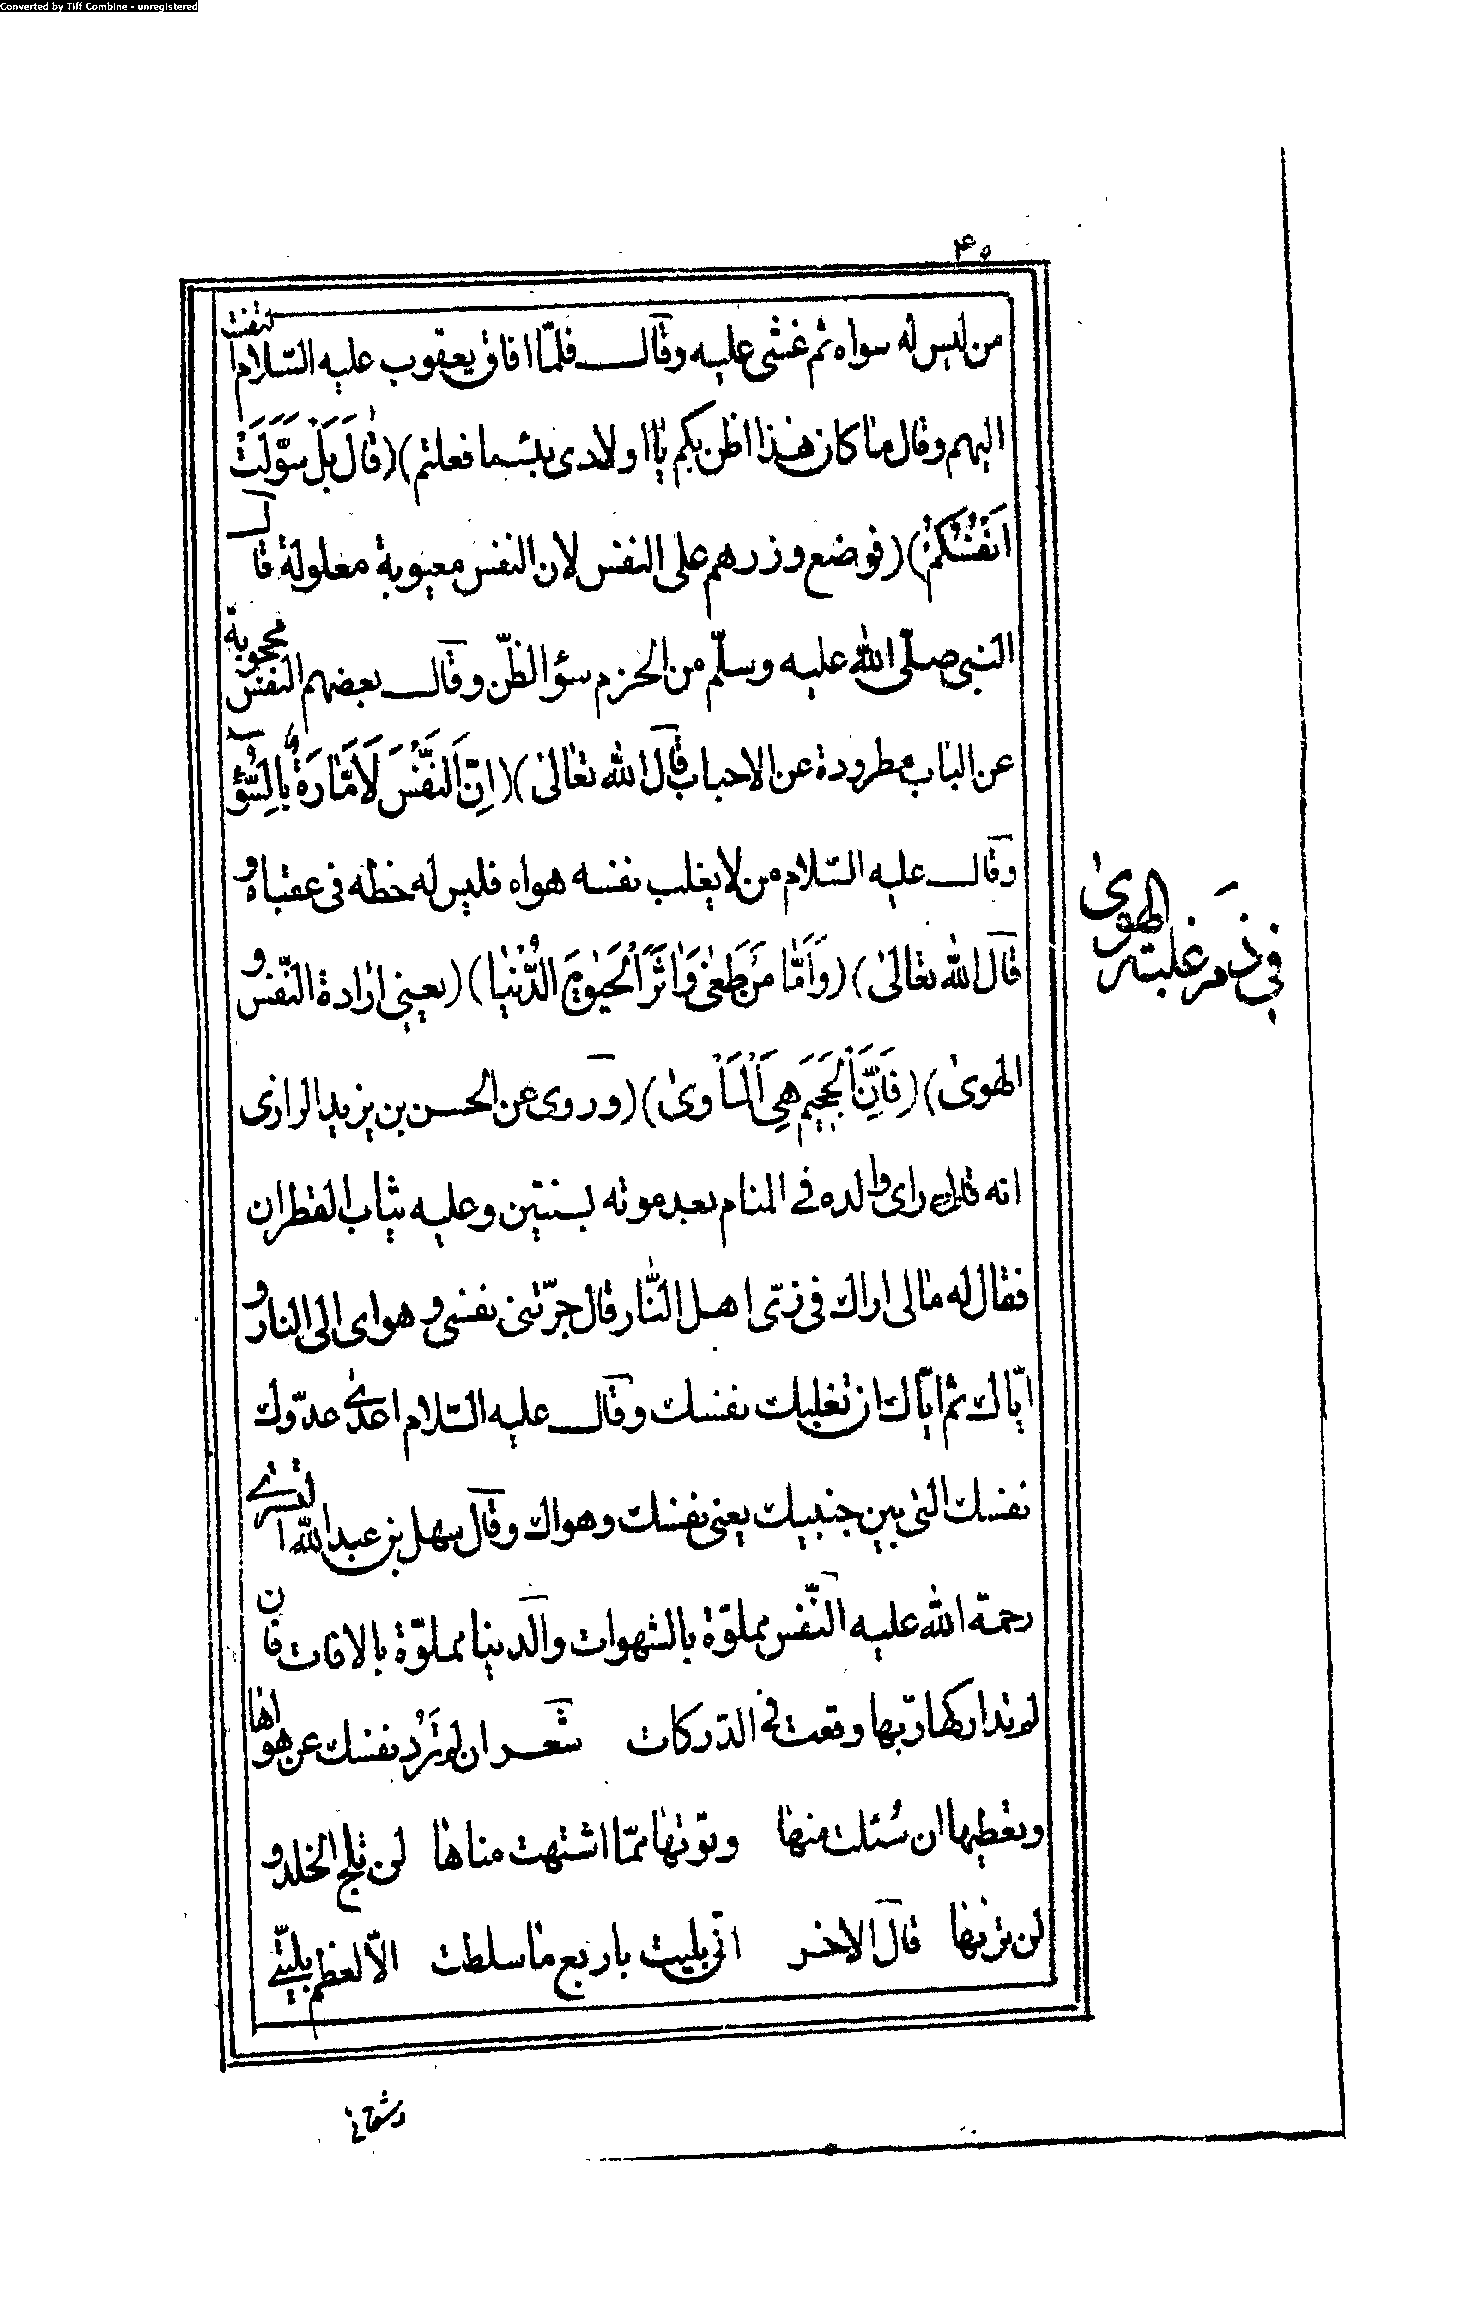 Converted by Tiff Combine - unregistered
۴۵
من ليس له سواه ثم غشى عليه وقال فلمّا افاق يعقوب عليه السّلام التفت
اليهم وقال ما كان هذا اظن بكم يا اولادى بئسما فعلتم)(قَالَ بَلْ سَوَّلَتْ
اَنْفُسُكُمْ)(فوضع وزرهم على النفس لان النفس معيوبة معلولة قال
النبى صلّى الله عليه وسلّم من الحزم سؤ الظّن وقال بعضهم النفس محجوبة
عن الباب مطرودة عن الاحباب قال الله تعالى)(اِنَّ النَّفْسَ لَاَمَّارَةٌ بِالسُّوْٓءِ
وقال عليه السّلام من لا يغلب نفسه هواه فليس له حظه فى عقباه و
قال الله تعالى)(وَاَمَّا مَنْ طَغٰى وَاٰثَرَ الْحَيٰوةَ الدُّنْيَا)(يعينى ارادة النّفس و
الهوى)(فَاِنَّ الْجَحِيْمَ هِىَ الْمَاْوٰى)(وروى عن الحسن بن يزيد الرازى
انه قال راى والده فى المنام بعد موته بسنتين وعليه ثياب القطران
فقال له مالى اراك فى زىّ اهل النّار قال جرّتنى نفسى و هواى الى النار و
ايّاك ثم ايّاك ان تغلبك نفسك وقال عليه السّلام اعدى عدّوك
نفسك التى بين جنبيك يعنى نفسك وهواك وقال سهل بن عبد الله التسترى
رحمة الله عليه النّفس مملوّة بالشهوات والدينا مملوّة بالافات فان
لم تداركها ربّها وقعت فى الدّركات شعر ان لم تَرُد نفسك عن هواها
وتعطيها ان سُئلت منها وتوتها ممّا اشتهت مناها لن تلج الخلد و
لن تريها قال الاخر انّى بليت باربع ما سلطت الّا لعظم بليّتى
وشقائى
فى ذم غلبة الهوى